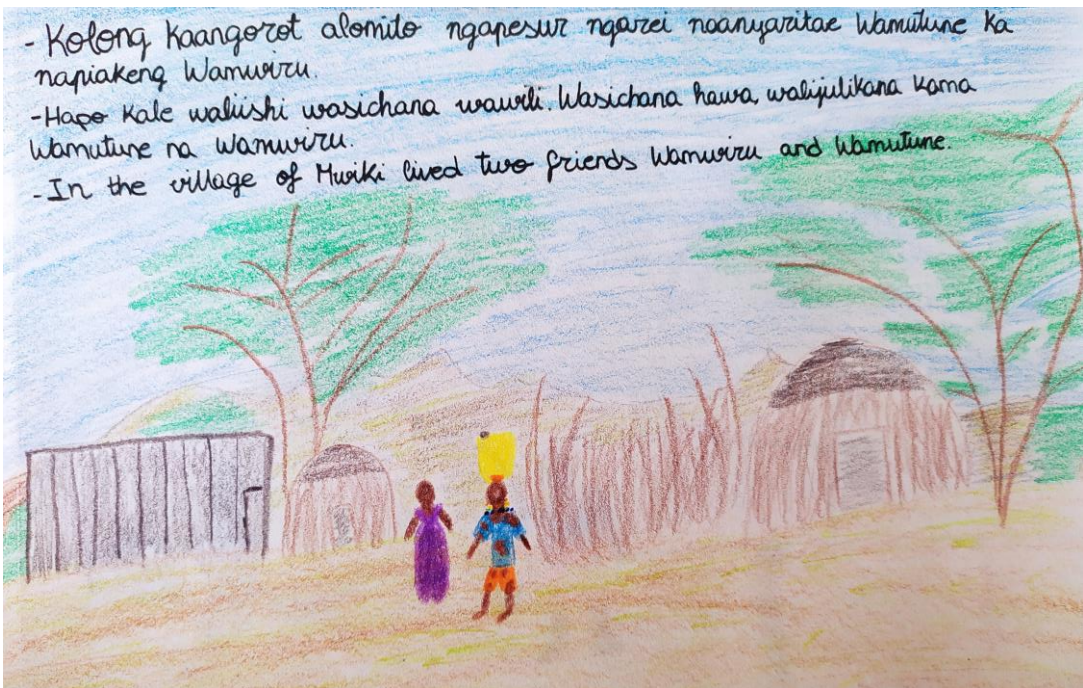 - Kolong kaangorot alomito ngapesur ngarei naanyaritae Wamutune ka
napiakeng Wamuwiru.
-Hapo Kale waliishi wasichana wawili. Wasichana hawa, walijulikana kama
Wamutune na Wamuwiru.
-In the village of Muriki lived two friends Wamuwiru and Wamutune.